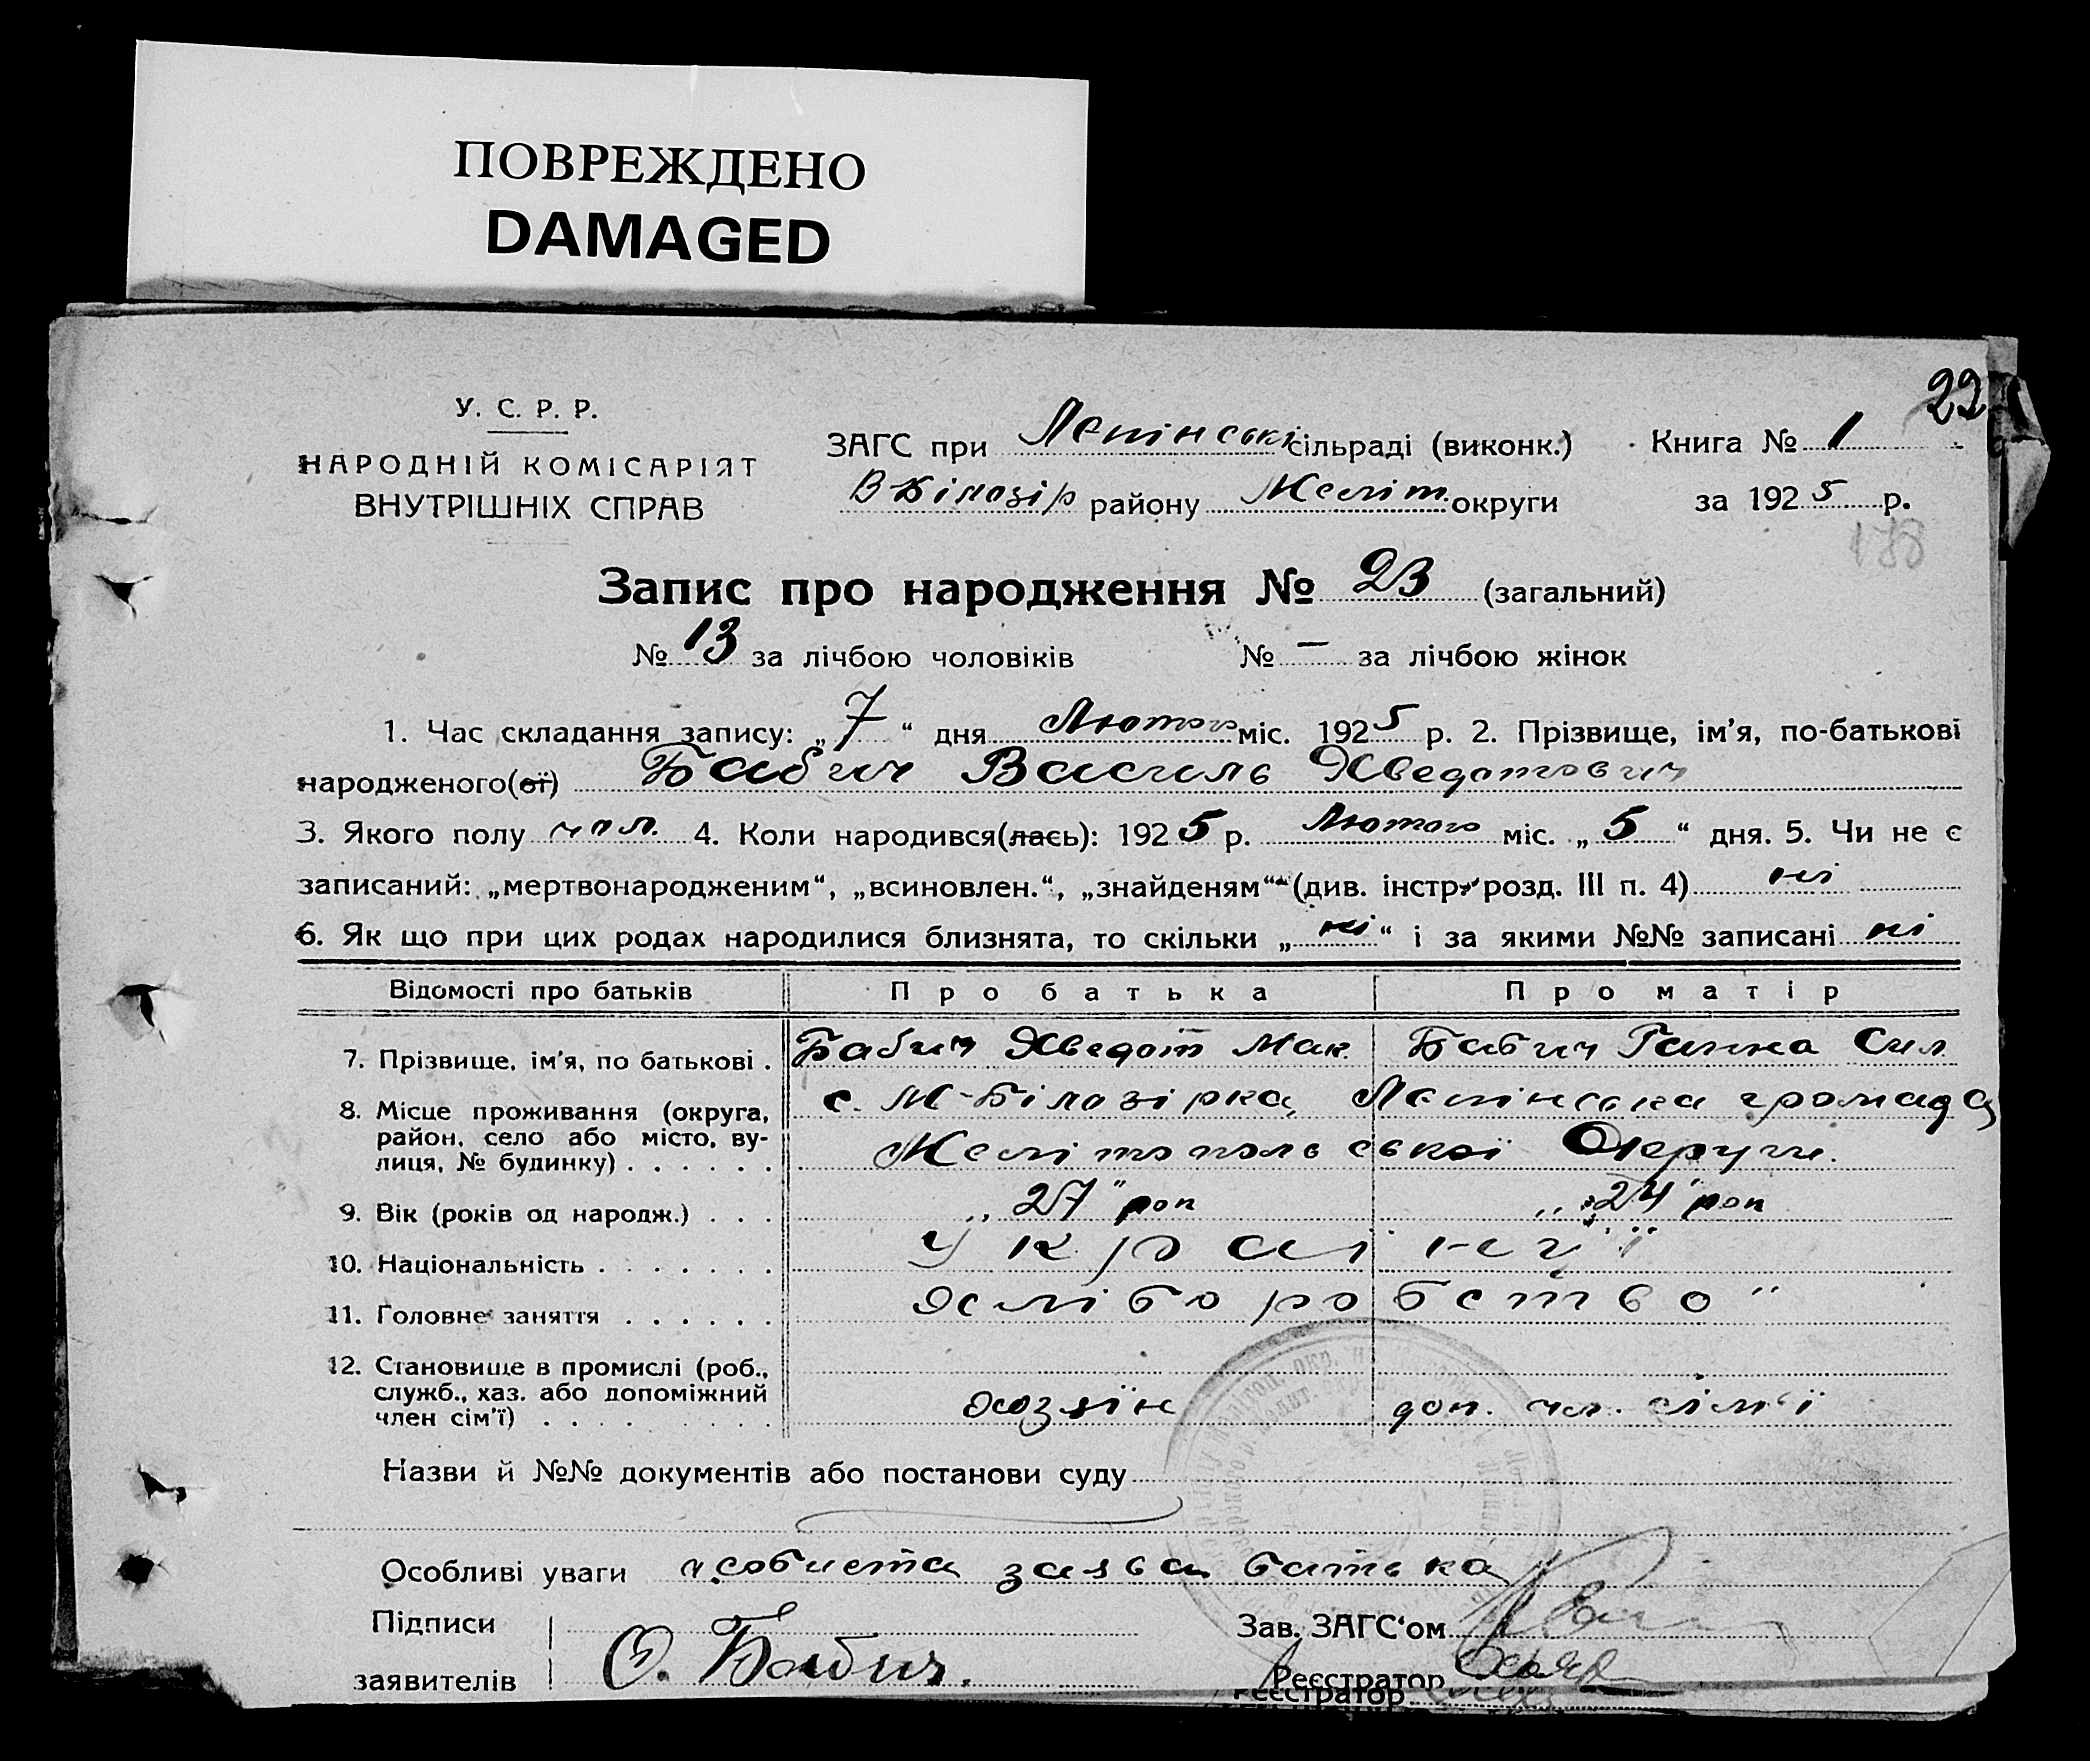 ПОВРЕЖДЕНО
DAMAGED
22
У. С. Р. Р.
НАРОДНІЙ КОМІСАРІЯТ
ВНУТРІШНІХ СПРАВ
ЗАГС при Лепінські сільраді (виконк.) Книга № 1
В Білозір району Меліт. округи за 1925 р.
138
Запис про народження № 23 (загальний)
№ 13 за лічбою чоловіків № — за лічбою жінок
1. Час складання запису: „7“ дня Лютого міс. 1925 р. 2. Прізвище, ім'я, по-батькові
народженого(ої) Бабич Василь Хведотович
3. Якого полу чол. 4. Коли народився(лась): 1925 р. Лютого міс. „5“ дня. 5. Чи не є
записаний: „мертвонародженим“, „всиновлен.“, „знайденям“ (див. інстр. розд. III п. 4) ні
6. Як що при цих родах народилися близнята, то скільки „ні“ і за якими №№ записані ні
Відомості про батьків Про батька Про матір
7. Прізвище, ім'я, по батькові . Бабич Хведот Мак. Бабич Ганна Сил.
8. Місце проживання (округа, район, село або місто, вулиця, № будинку) . . . . . . с. М-Білозірка, Лепінська громада
Мелітопольської Округи.
9. Вік (років од народж.) . . . „27" рок „24" рок
10. Національність . . . . . . . Українці
11. Головне заняття . . . . . . Хліборобство"
12. Становище в промислі (роб., служб., хаз. або допоміжний член сім'ї) . . . . . . . хозяїн доп. чл. сім'ї
Назви й №№ документів або постанови суду
Особливі уваги особиста заява батька
Підписи
заявителів О. Бабич.
Зав. ЗАГС'ом
Реєстратор
Реєстратор